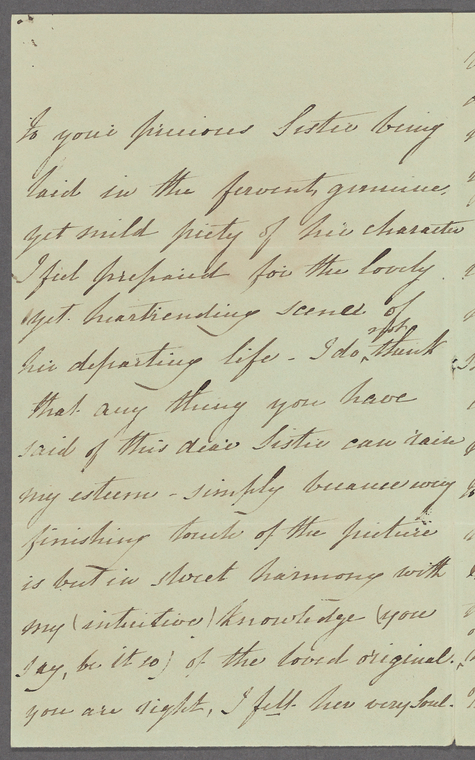 To your precious Sister being
laid in the fervent, genuine,
yet mild piety of her character
I feel prepared for the lovely
yet heartrending scene of
her departing life - I do not think
that any thing you have
said of this dear Sister can raise
my esteem - simply because every
finishing touch of the picture
is but in sweet harmony with
my (intuitive) knowledge (you
say, be it so) of the loved original.
you are right, I felt her very Soul.